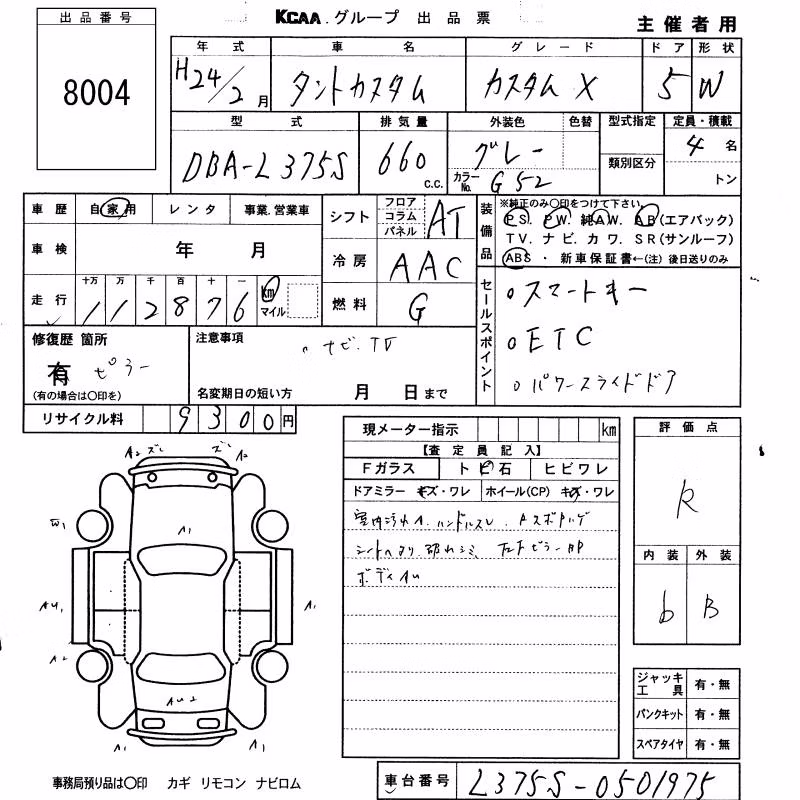 出品番号
8004
KCAA.グループ 出品票
主催者用
年式 車名 グレード ドア 形状
H24/2月 タントカスタム カスタム X 5 W
型式 排気量 外装色 色替 型式指定 定員・積載
DBA-L375S 660 c.c. グレー 4名
カラーNo. G52 類別区分 トン
車歴 自家用 レンタ 事業.営業車
車検 年 月
走行 十万 万 千 百 十 一
112876 km マイル
シフト フロア コラム パネル AT
冷房 AAC
燃料 G
装備品 ※純正のみ〇印をつけて下さい
PS. PW. 純AW. AB(エアバック)
TV. ナビ. カワ. SR(サンルーフ)
ABS ・ 新車保証書←(注) 後日送りのみ
セールスポイント
○スマートキー
○ETC
○パワースライドドア
修復歴 箇所
有 ピラー
(有の場合は〇印を)
注意事項
ナビ.TV
名変期日の短い方 月 日まで
リサイクル料 9300円
現メーター指示 km
【査定員記入】
Fガラス トビ石 ヒビワレ
ドアミラー キズ・ワレ ホイール(CP) キズ・ワレ
室内汚れA.ハンドルスレ.
シートヘタリ
ボディAU
評価点
R
内装 外装
b B
A2 ズレ ズレ A2
W1
A1
AU1
A1
A2
AU2
A1 A1
ジャッキ工具 有・無
パンクキット 有・無
スペアタイヤ 有・無
事務局預り品は〇印 カギ リモコン ナビロム
車台番号 L375S-0501975